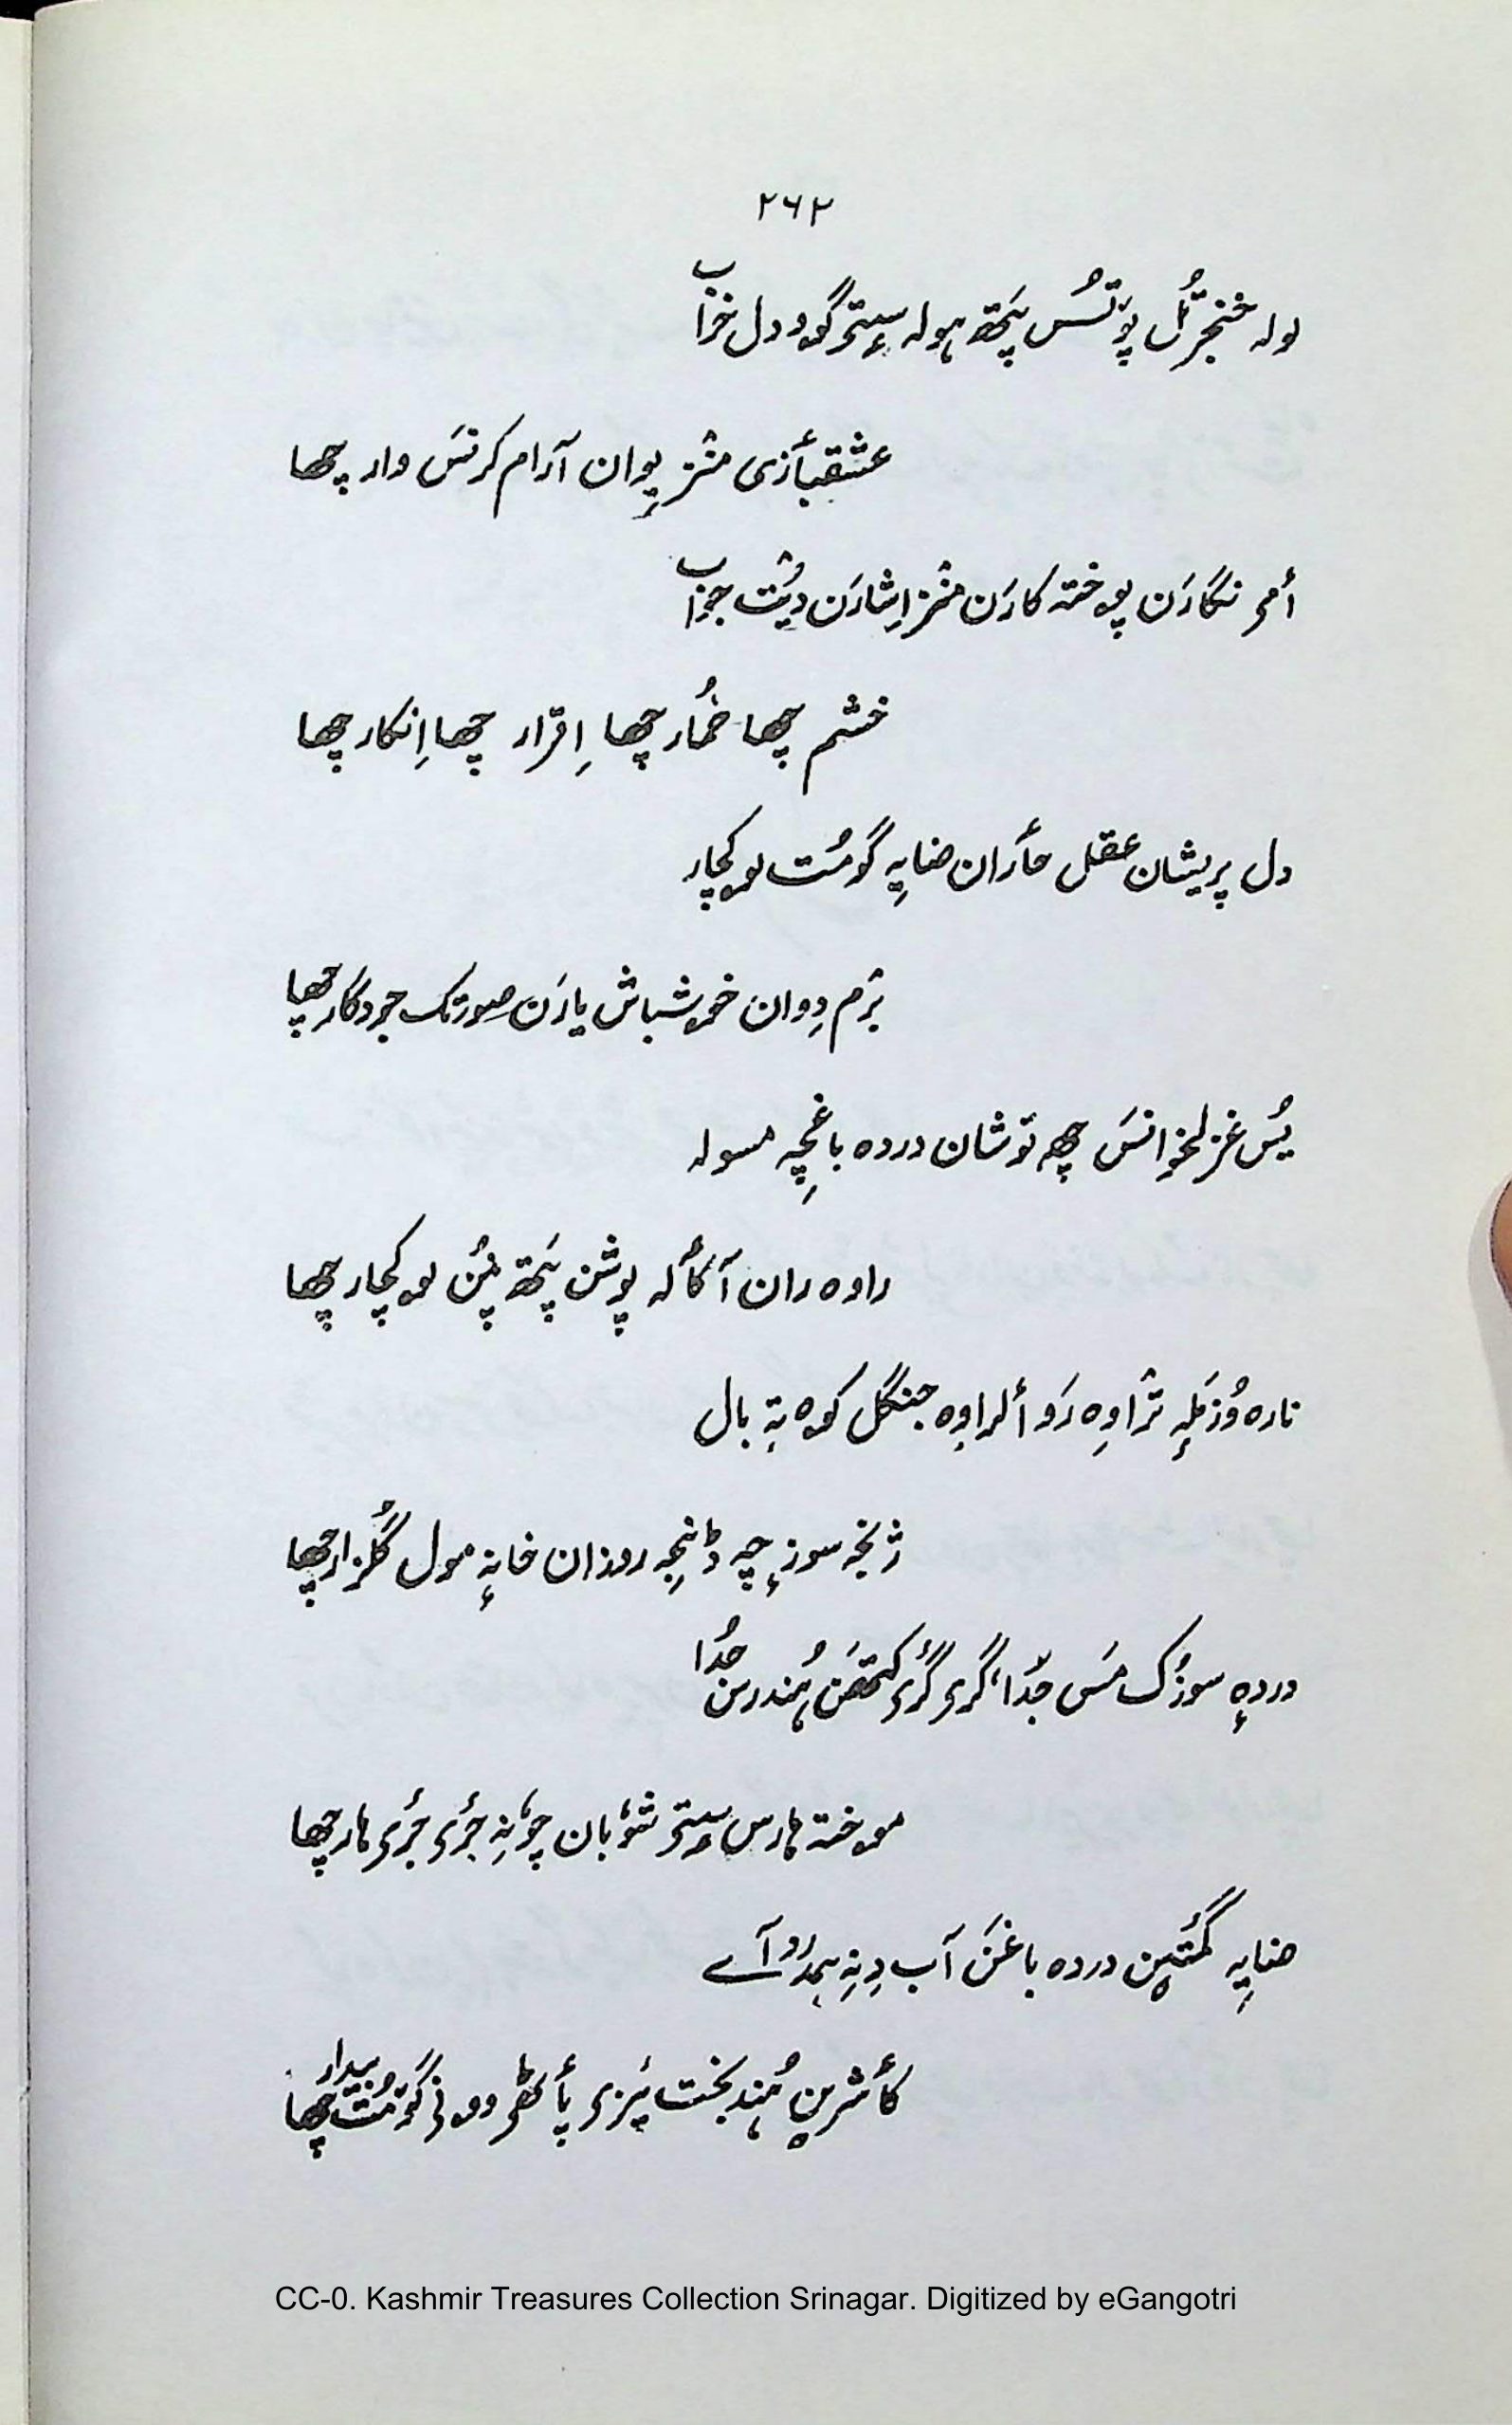 ۲۶۲
لولہ خنجرُل پوٚتسُ پَتھ ہولہ سٟتۍ گوو دل خراب
عشقبٲزی منٛز پوان آرام کرنَس وار چھا
أمۍ نگارَن پوختہ کارَن منٛز اِشارَن دیُت جواب
خشم چھا خُمار چھا اِقرار چھا اِنکار چھا
دل پریشان عقل حٲران ضایہِ گومُت لوکچار
بزم دِوان خوشباش یارَن صورتک جودکار چھا
یُس غزلخوانَس چھہ توشان دردہ باغچہِ مسولہ
راوہ ران آ کٲلہ پوشن پَتھ پنُن لوکچار چھا
نارہ وُزمَلہٕ ترٛاوِہ رَو ألراوِہ جنگل کوہ تہٕ بال
ژنجہ سوزٕچہ ڈانٛجہِ روزان خانہٕ مول گُلزار چھا
دردہٕ سوزُک مَس جُدا، گرۍ گرۍ کتھَن ہُندرس جُدا
موختہ ہارس سٟتۍ شوٗبان چوٗنہِ جرۍ جرۍ ہار چھا
ضایہِ گمٔتٮ۪ن دردہ باغَن آب دِنہِ ہمدرد آے
کٲشرٮ۪ن ہُند بخت پَزی پٲٹھۍ وونۍ گوٚمُت بیدار چھا
CC-0. Kashmir Treasures Collection Srinagar. Digitized by eGangotri